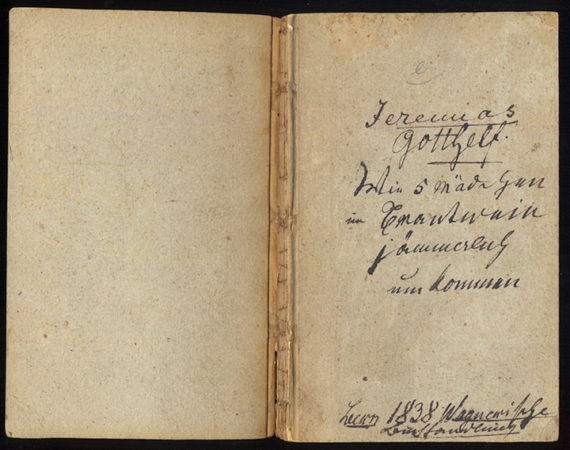 Jeremias
Gotthelf.
Wie 5 Mädchen
im Brantwein
jämmerlich
um kommen
Bern 1838 Wagnerische